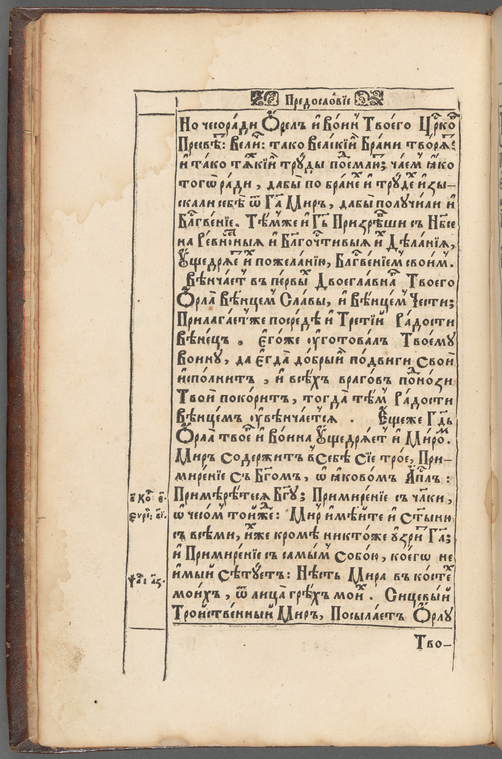 Предословїе
Но чесоради Ѻрелъ и Воинъ Твоегѡ Црко͠
Пресвѣ: Вели: тако Велїскїѧ Брани творѧ͠:
и тако тѧ́жкїѧ трꙋды поемлю҃: чаем̾ ꙗко
тогѡ ради , дабы по бране҃ и трꙋде҃ изы-
скали себѣ ѿ Г҃а Миръ, дабы полꙋчили и
Бл҃гвенїе. Тѣмже и Г҃ь Призрѣвши съ Нб҃се
на Ревнс҃ныѧ и Бл҃гочтⷭ҇ивыѧ и҃ Дѣланїѧ,
Ꙋщедрѧе҃ и пожеланїю, Бл҃гвенїем҃ своим҃.
Вѣнчает҃ въ первы҃ Двоеглавна҃ Твоего
Ѻрла Вѣнцем҃ Славы, и Вѣнцем҃ Чести:
Прилагает҃же посредѣ и Третїй Радости
Вѣнецъ , єгоже оуготовалъ Твоемꙋ
Воинꙋ , да єгда добрыѧ подвиги Свой
исполнитъ , и всѣхъ враговъ по҃нози
Твои покоритъ , тогда тѣм҃ Радости
Вѣнцемъ оувѣнчаетсѧ . Єщеже Г҃дь
Ѻрла твое҃ и Воина ꙋщедрѧет҃ и Миро҃.
Миръ содержитъ в̾себѣ сїе трое, При-
миренїе съ Бг҃омъ, ѡ ꙗковом҃ Ап҃лъ :
в҃ ко҃ е҃.
Примѣретесѧ Бг҃ꙋ: Примиренїе съ чл҃ки,
сирⷯ: ві҃.
ѡ чесом҃ тойже҃: Мир҃ имѣйте и ст҃ыни
съ всѣми, и҃же кромѣ никтоже оузри҃ Г҃а:
и Примиренїе съ самым҃ Собою, коегѡ не
ѱа҃: лз҃.
имый сѣтꙋетъ: Нѣсть Мира въ косте҃
моихъ, ѿ лица грѣхъ мои҃ . Сицевый
Тройственный Миръ, Посылаетъ Ѻрлꙋ
Тво-